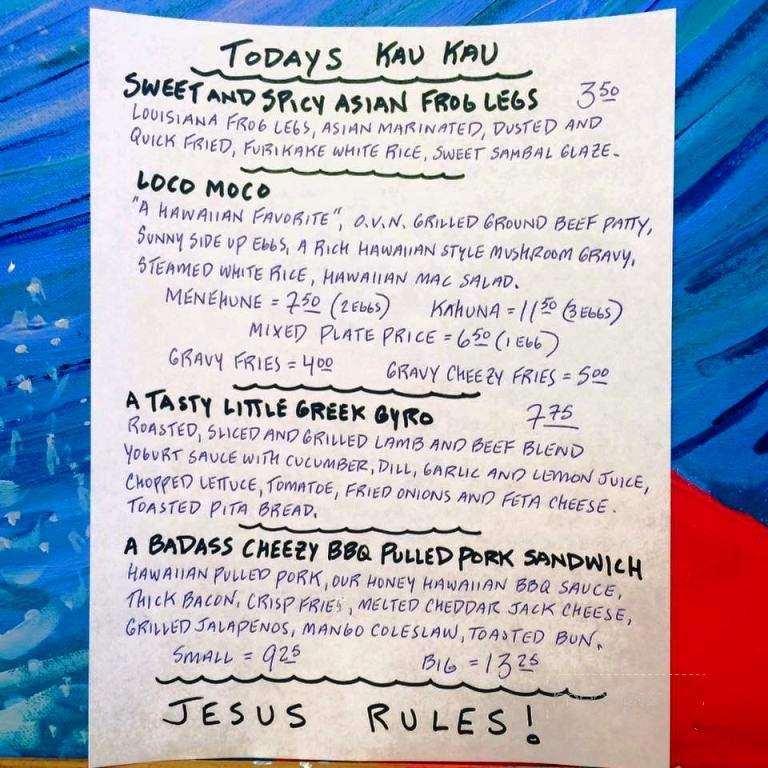 TODAYS KAU KAU
SWEET AND SPICY ASIAN FROG LEGS 3.50
LOUISIANA FROG LEGS, ASIAN MARINATED, DUSTED AND
QUICK FRIED, FURIKAKE WHITE RICE, SWEET SAMBAL GLAZE.
LOCO MOCO
"A HAWAIIAN FAVORITE", O.V.N. GRILLED GROUND BEEF PATTY,
SUNNY SIDE UP EGGS, A RICH HAWAIIAN STYLE MUSHROOM GRAVY,
STEAMED WHITE RICE, HAWAIIAN MAC SALAD.
MENEHUNE = 7.50 (2 EGGS) KAHUNA = 11.50 (3 EGGS)
MIXED PLATE PRICE = 6.50 (1 EGG)
GRAVY FRIES = 4.00 GRAVY CHEEZY FRIES = 5.00
A TASTY LITTLE GREEK GYRO 7.75
ROASTED, SLICED AND GRILLED LAMB AND BEEF BLEND
YOGURT SAUCE WITH CUCUMBER, DILL, GARLIC AND LEMON JUICE,
CHOPPED LETTUCE, TOMATOE, FRIED ONIONS AND FETA CHEESE.
TOASTED PITA BREAD.
A BADASS CHEEZY BBQ PULLED PORK SANDWICH
HAWAIIAN PULLED PORK, OUR HONEY HAWAIIAN BBQ SAUCE,
THICK BACON, CRISP FRIES, MELTED CHEDDAR JACK CHEESE,
GRILLED JALAPENOS, MANGO COLESLAW, TOASTED BUN.
SMALL = 9.25 BIG = 13.25
JESUS RULES!